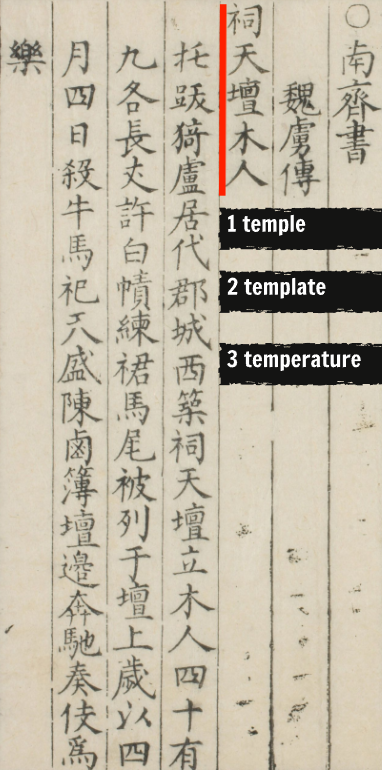 ○南齊書
魏虜傳
祠天壇木人
托跋猗盧居代郡城西築祠天壇立木人四十有
九各長丈許白幘練裙馬尾被列于壇上歲以四
月四日殺牛馬祀天盛陳鹵簿壇邊奔馳奏伎爲
樂
1 temple
2 template
3 temperature